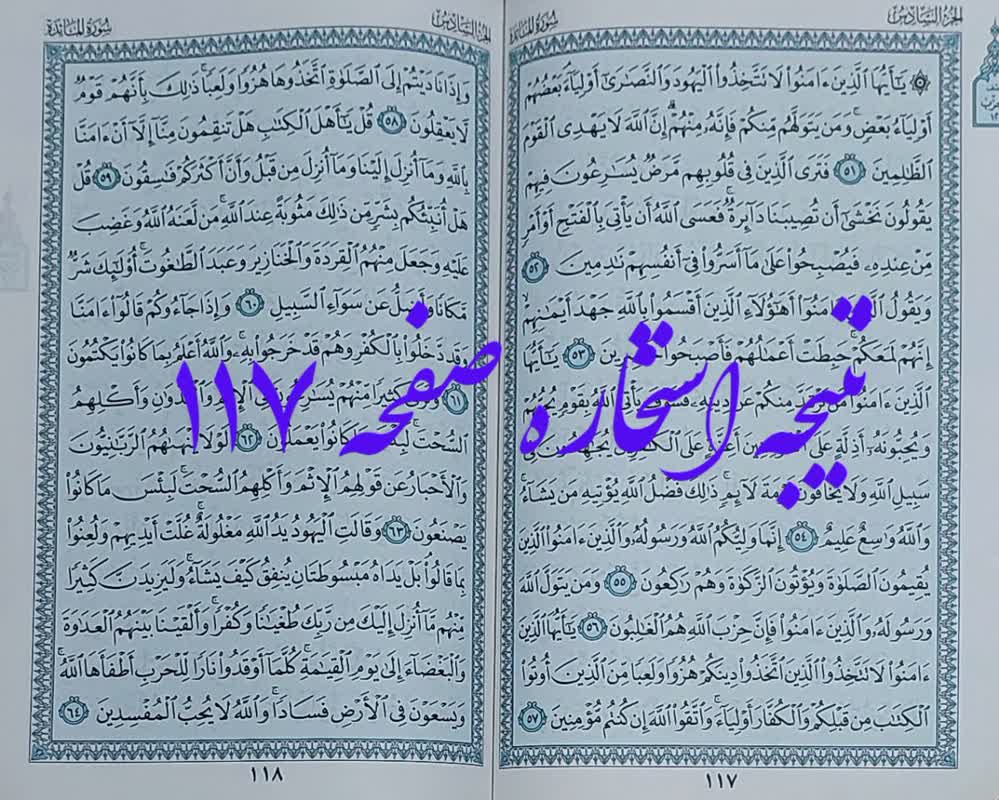 الجزء السادس
سورة المائدة
يَٰٓأَيُّهَا ٱلَّذِينَ ءَامَنُوا۟ لَا تَتَّخِذُوا۟ ٱلْيَهُودَ وَٱلنَّصَٰرَىٰٓ أَوْلِيَآءَ بَعْضُهُمْ
أَوْلِيَآءُ بَعْضٍ وَمَن يَتَوَلَّهُم مِّنكُمْ فَإِنَّهُۥ مِنْهُمْ إِنَّ ٱللَّهَ لَا يَهْدِى ٱلْقَوْمَ
ٱلظَّٰلِمِينَ ٥١ فَتَرَى ٱلَّذِينَ فِى قُلُوبِهِم مَّرَضٌ يُسَٰرِعُونَ فِيهِمْ
يَقُولُونَ نَخْشَىٰٓ أَن تُصِيبَنَا دَآئِرَةٌ فَعَسَى ٱللَّهُ أَن يَأْتِىَ بِٱلْفَتْحِ أَوْ أَمْرٍ
مِّنْ عِندِهِۦ فَيُصْبِحُوا۟ عَلَىٰ مَآ أَسَرُّوا۟ فِىٓ أَنفُسِهِمْ نَٰدِمِينَ ٥٢
وَيَقُولُ ٱلَّذِينَ ءَامَنُوٓا۟ أَهَٰٓؤُلَآءِ ٱلَّذِينَ أَقْسَمُوا۟ بِٱللَّهِ جَهْدَ أَيْمَٰنِهِمْ
إِنَّهُمْ لَمَعَكُمْ حَبِطَتْ أَعْمَٰلُهُمْ فَأَصْبَحُوا۟ خَٰسِرِينَ ٥٣ يَٰٓأَيُّهَا
ٱلَّذِينَ ءَامَنُوا۟ مَن يَرْتَدَّ مِنكُمْ عَن دِينِهِۦ فَسَوْفَ يَأْتِى ٱللَّهُ بِقَوْمٍ يُحِبُّهُمْ
وَيُحِبُّونَهُۥٓ أَذِلَّةٍ عَلَى ٱلْمُؤْمِنِينَ أَعِزَّةٍ عَلَى ٱلْكَٰفِرِينَ يُجَٰهِدُونَ فِى
سَبِيلِ ٱللَّهِ وَلَا يَخَافُونَ لَوْمَةَ لَآئِمٍ ذَٰلِكَ فَضْلُ ٱللَّهِ يُؤْتِيهِ مَن يَشَآءُ
وَٱللَّهُ وَٰسِعٌ عَلِيمٌ ٥٤ إِنَّمَا وَلِيُّكُمُ ٱللَّهُ وَرَسُولُهُۥ وَٱلَّذِينَ ءَامَنُوا۟ ٱلَّذِينَ
يُقِيمُونَ ٱلصَّلَوٰةَ وَيُؤْتُونَ ٱلزَّكَوٰةَ وَهُمْ رَٰكِعُونَ ٥٥ وَمَن يَتَوَلَّ ٱللَّهَ
وَرَسُولَهُۥ وَٱلَّذِينَ ءَامَنُوا۟ فَإِنَّ حِزْبَ ٱللَّهِ هُمُ ٱلْغَٰلِبُونَ ٥٦ يَٰٓأَيُّهَا ٱلَّذِينَ
ءَامَنُوا۟ لَا تَتَّخِذُوا۟ ٱلَّذِينَ ٱتَّخَذُوا۟ دِينَكُمْ هُزُوًا وَلَعِبًا مِّنَ ٱلَّذِينَ أُوتُوا۟
ٱلْكِتَٰبَ مِن قَبْلِكُمْ وَٱلْكُفَّارَ أَوْلِيَآءَ وَٱتَّقُوا۟ ٱللَّهَ إِن كُنتُم مُّؤْمِنِينَ ٥٧
١١٧
الجزء السادس
سورة المائدة
وَإِذَا نَادَيْتُمْ إِلَى ٱلصَّلَوٰةِ ٱتَّخَذُوهَا هُزُوًا وَلَعِبًا ذَٰلِكَ بِأَنَّهُمْ قَوْمٌ
لَّا يَعْقِلُونَ ٥٨ قُلْ يَٰٓأَهْلَ ٱلْكِتَٰبِ هَلْ تَنقِمُونَ مِنَّآ إِلَّآ أَنْ ءَامَنَّا
بِٱللَّهِ وَمَآ أُنزِلَ إِلَيْنَا وَمَآ أُنزِلَ مِن قَبْلُ وَأَنَّ أَكْثَرَكُمْ فَٰسِقُونَ ٥٩ قُلْ
هَلْ أُنَبِّئُكُم بِشَرٍّ مِّن ذَٰلِكَ مَثُوبَةً عِندَ ٱللَّهِ مَن لَّعَنَهُ ٱللَّهُ وَغَضِبَ
عَلَيْهِ وَجَعَلَ مِنْهُمُ ٱلْقِرَدَةَ وَٱلْخَنَازِيرَ وَعَبَدَ ٱلطَّٰغُوتَ أُو۟لَٰٓئِكَ شَرٌّ
مَّكَانًا وَأَضَلُّ عَن سَوَآءِ ٱلسَّبِيلِ ٦٠ وَإِذَا جَآءُوكُمْ قَالُوٓا۟ ءَامَنَّا
وَقَد دَّخَلُوا۟ بِٱلْكُفْرِ وَهُمْ قَدْ خَرَجُوا۟ بِهِۦ وَٱللَّهُ أَعْلَمُ بِمَا كَانُوا۟ يَكْتُمُونَ
٦١ وَتَرَىٰ كَثِيرًا مِّنْهُمْ يُسَٰرِعُونَ فِى ٱلْإِثْمِ وَٱلْعُدْوَٰنِ وَأَكْلِهِمُ
ٱلسُّحْتَ لَبِئْسَ مَا كَانُوا۟ يَعْمَلُونَ ٦٢ لَوْلَا يَنْهَىٰهُمُ ٱلرَّبَّٰنِيُّونَ
وَٱلْأَحْبَارُ عَن قَوْلِهِمُ ٱلْإِثْمَ وَأَكْلِهِمُ ٱلسُّحْتَ لَبِئْسَ مَا كَانُوا۟
يَصْنَعُونَ ٦٣ وَقَالَتِ ٱلْيَهُودُ يَدُ ٱللَّهِ مَغْلُولَةٌ غُلَّتْ أَيْدِيهِمْ وَلُعِنُوا۟
بِمَا قَالُوا۟ بَلْ يَدَاهُ مَبْسُوطَتَانِ يُنفِقُ كَيْفَ يَشَآءُ وَلَيَزِيدَنَّ كَثِيرًا
مِّنْهُم مَّآ أُنزِلَ إِلَيْكَ مِن رَّبِّكَ طُغْيَٰنًا وَكُفْرًا وَأَلْقَيْنَا بَيْنَهُمُ ٱلْعَدَٰوَةَ
وَٱلْبَغْضَآءَ إِلَىٰ يَوْمِ ٱلْقِيَٰمَةِ كُلَّمَآ أَوْقَدُوا۟ نَارًا لِّلْحَرْبِ أَطْفَأَهَا ٱللَّهُ
وَيَسْعَوْنَ فِى ٱلْأَرْضِ فَسَادًا وَٱللَّهُ لَا يُحِبُّ ٱلْمُفْسِدِينَ ٦٤
١١٨
نتیجه استخاره صفحه ۱۱۷